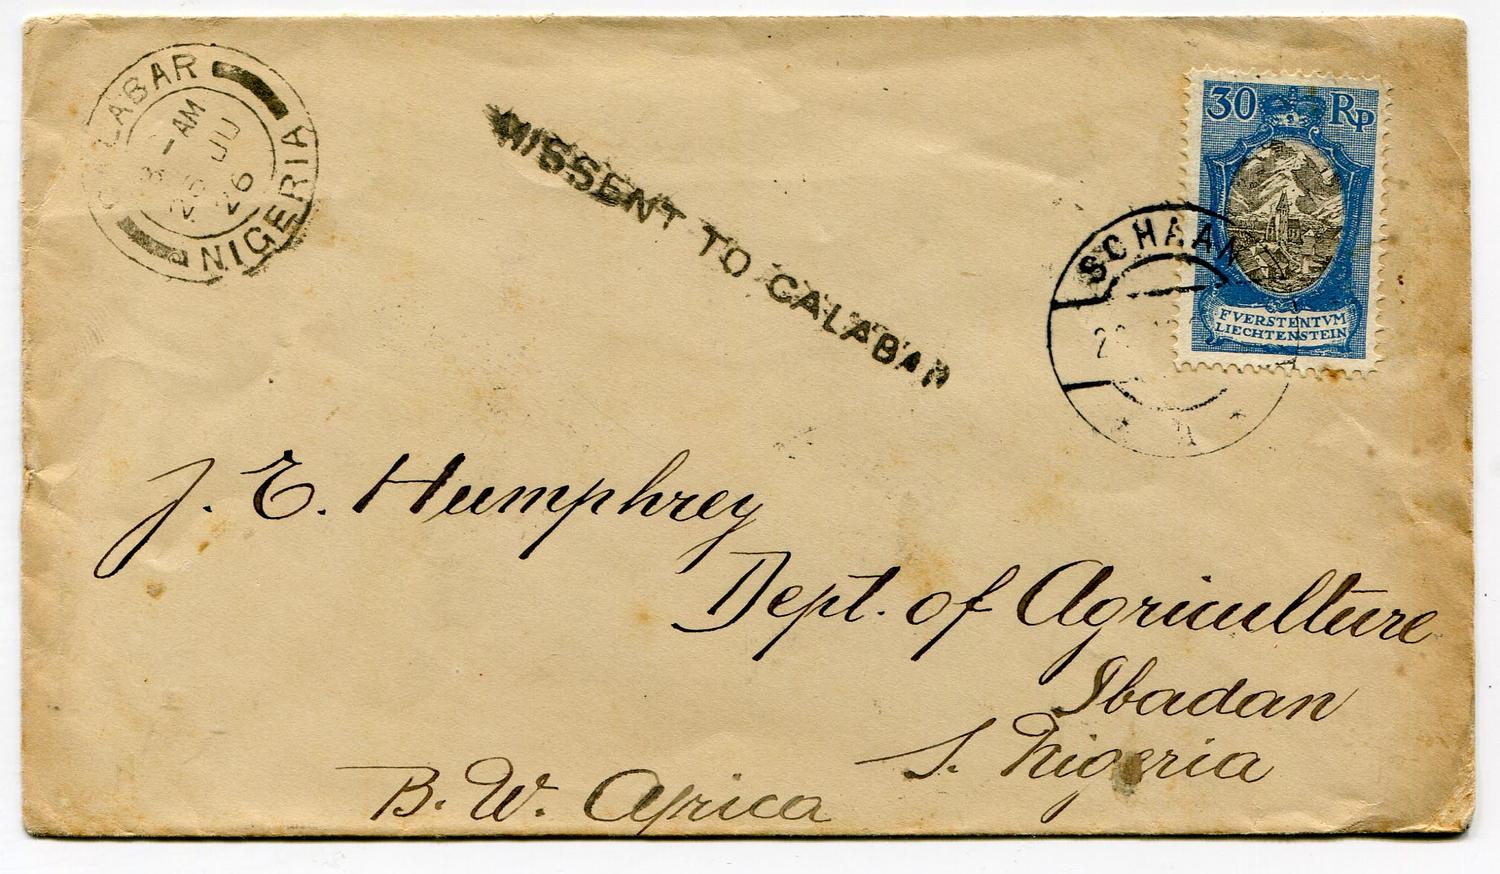 CALABAR
AM
26
NIGERIA
MISSENT TO CALABAR
30 Rp
FVERSTENTVM
LIECHTENSTEIN
SCHAAN
J. E. Humphrey
Dept. of Agriculture
Ibadan
S. Nigeria
B. W. Africa